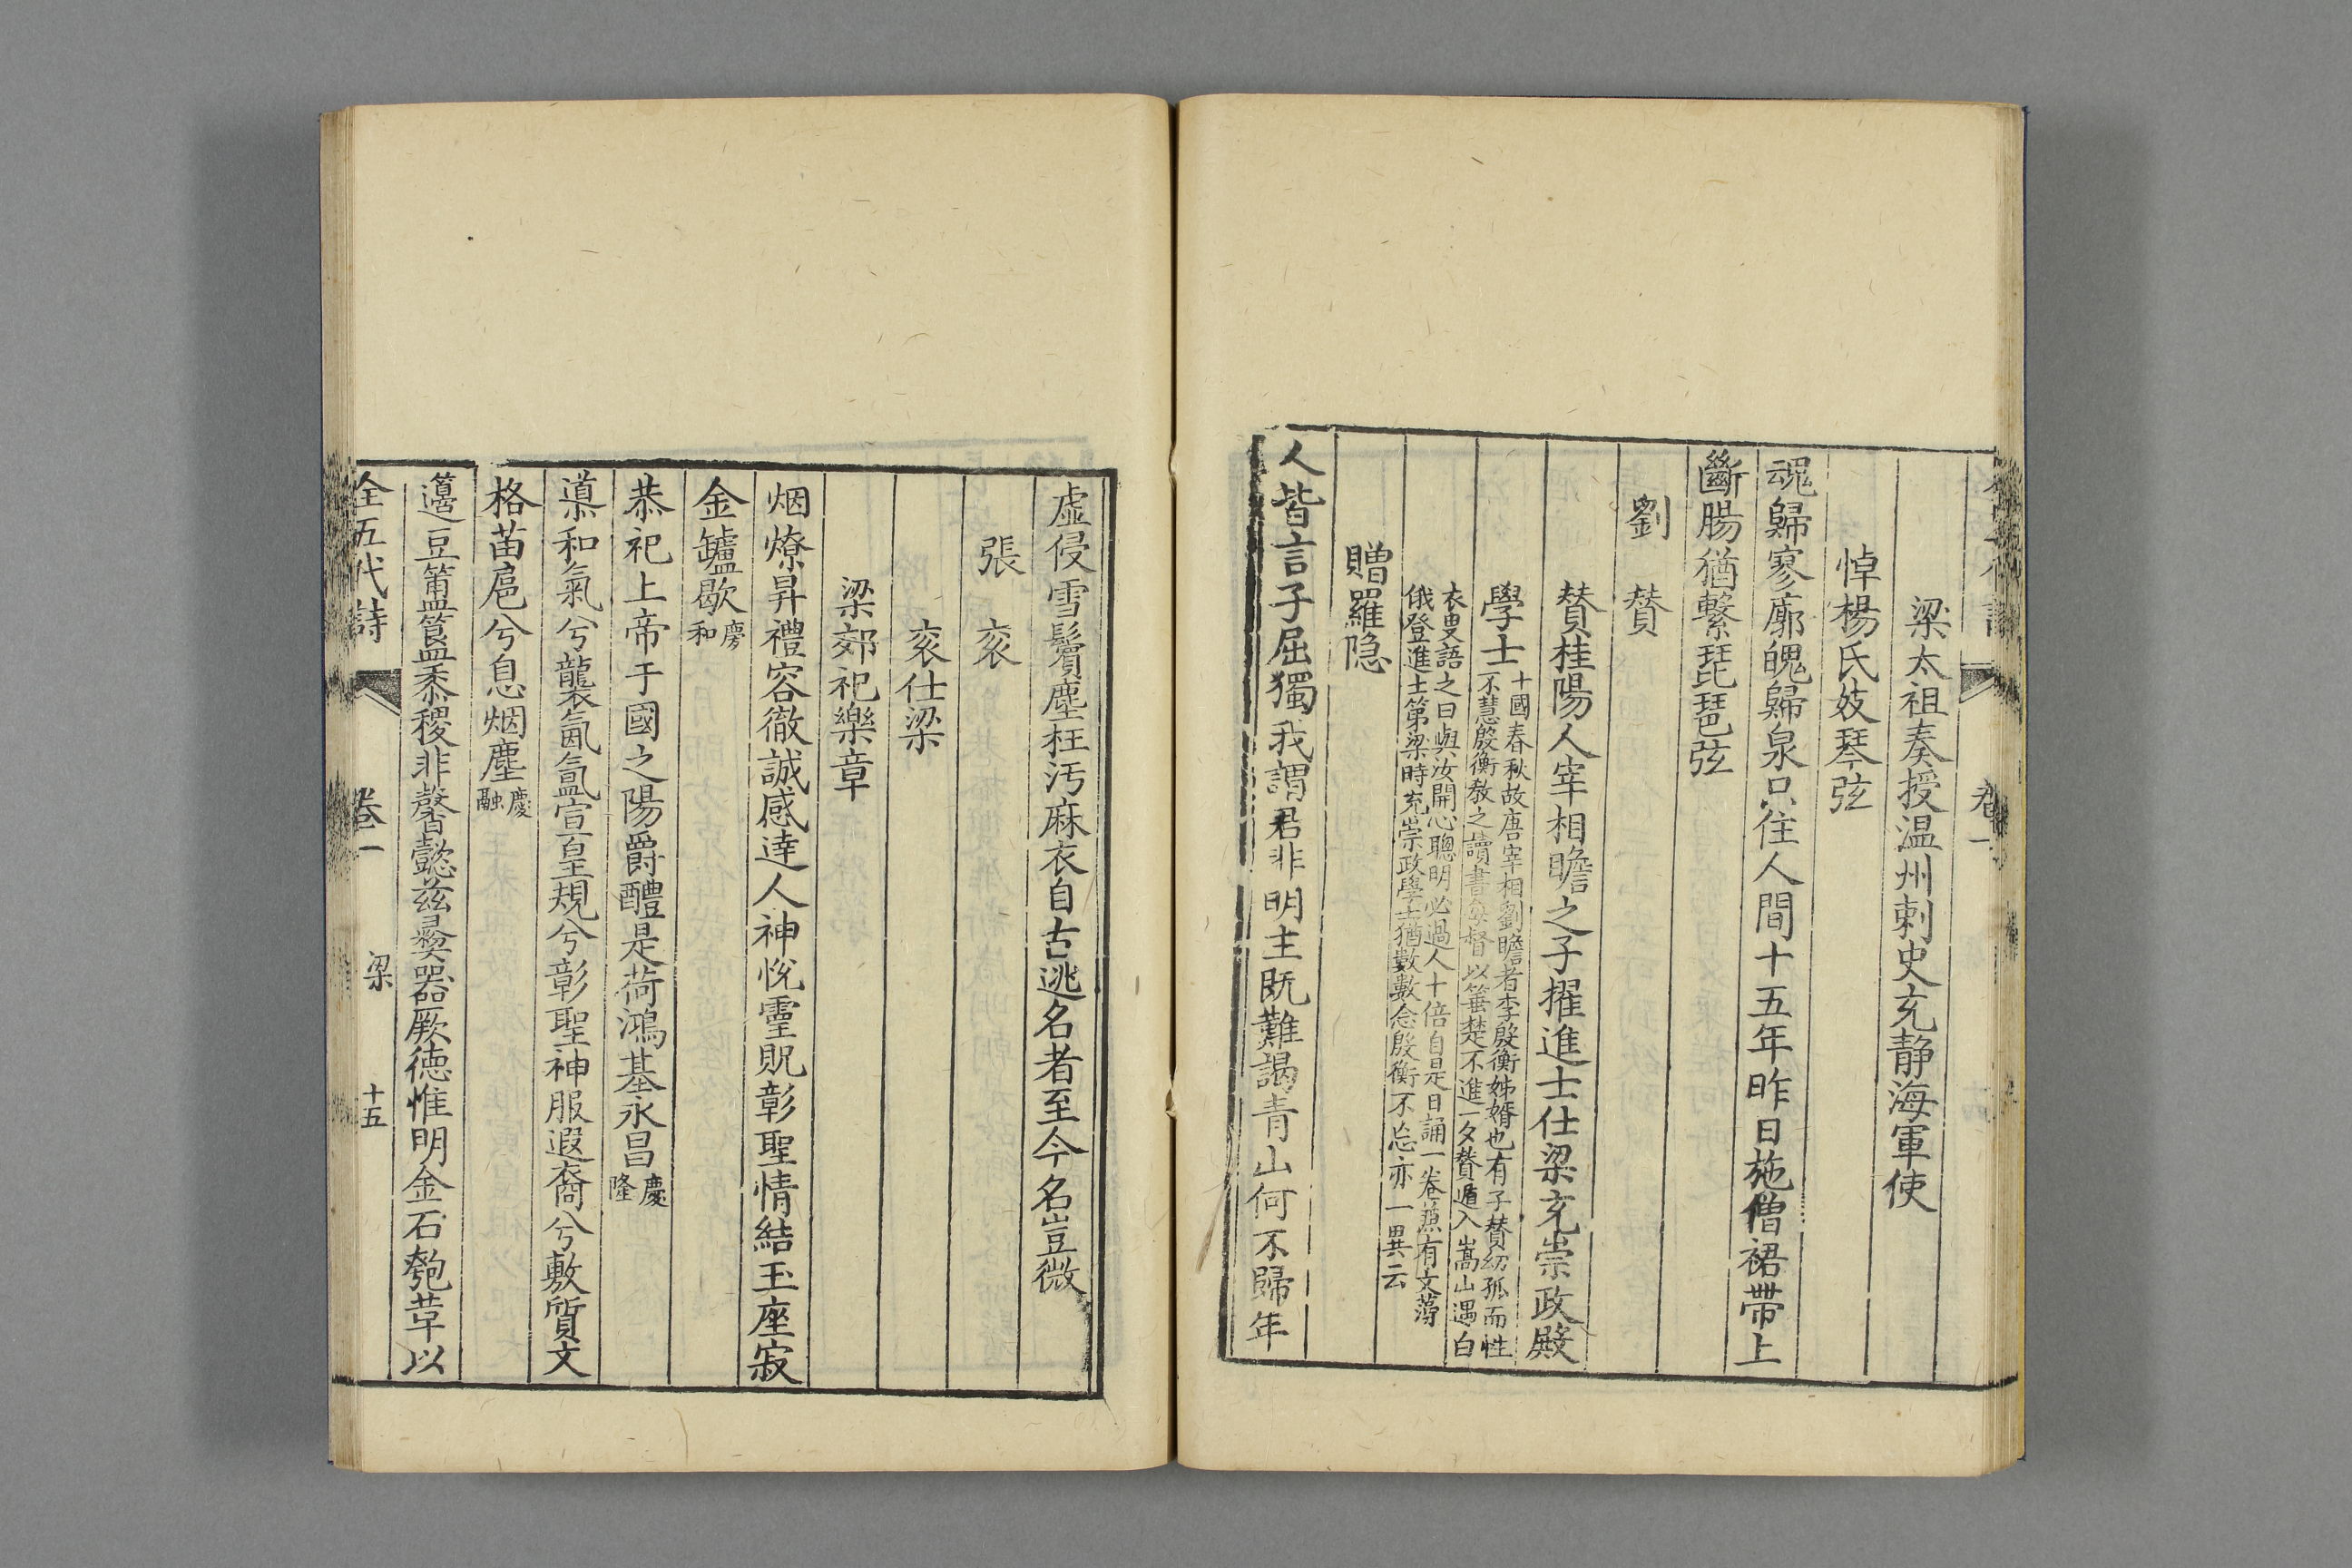 卷一
梁太祖奏授温州刺史充静海軍使
悼楊氏妓琴弦
魂歸寥廓魄歸泉只住人間十五年昨日施僧裙帶上
斷腸猶繫琵琶弦
劉贊
贊桂陽人宰相瞻之子擢進士仕梁充崇政殿
學士
十國春秋故唐宰相劉瞻者李殷衡姊婿也有子贊幼孤而性
不慧殷衡教之讀書每督以箠楚不進一夕贊遁入嵩山遇白
衣叟語之曰與汝開心聰明必過人十倍自是日誦一卷兼有文藻
俄登進士第梁時充崇政學士猶數數念殷衡不忘亦一異云
贈羅隐
人皆言子屈獨我謂君非明主既難謁青山何不歸年
虛侵雪鬢塵枉汚麻衣自古逃名者至今名豈微
張衮
衮仕梁
梁郊祀樂章
烟燎昇禮容徹誠感達人神悅靈貺彰聖情結玉座寂
金鑪歇
慶
和
恭祀上帝于國之陽爵醴是荷鴻基永昌
慶
隆
導和氣兮襲氤氳宣皇規兮彰聖神服遐裔兮敷質文
格苗扈兮息烟塵
慶
融
籩豆簠簋黍稷非馨懿兹彝器厥德惟明金石匏革以
全五代詩
卷一
梁
十五